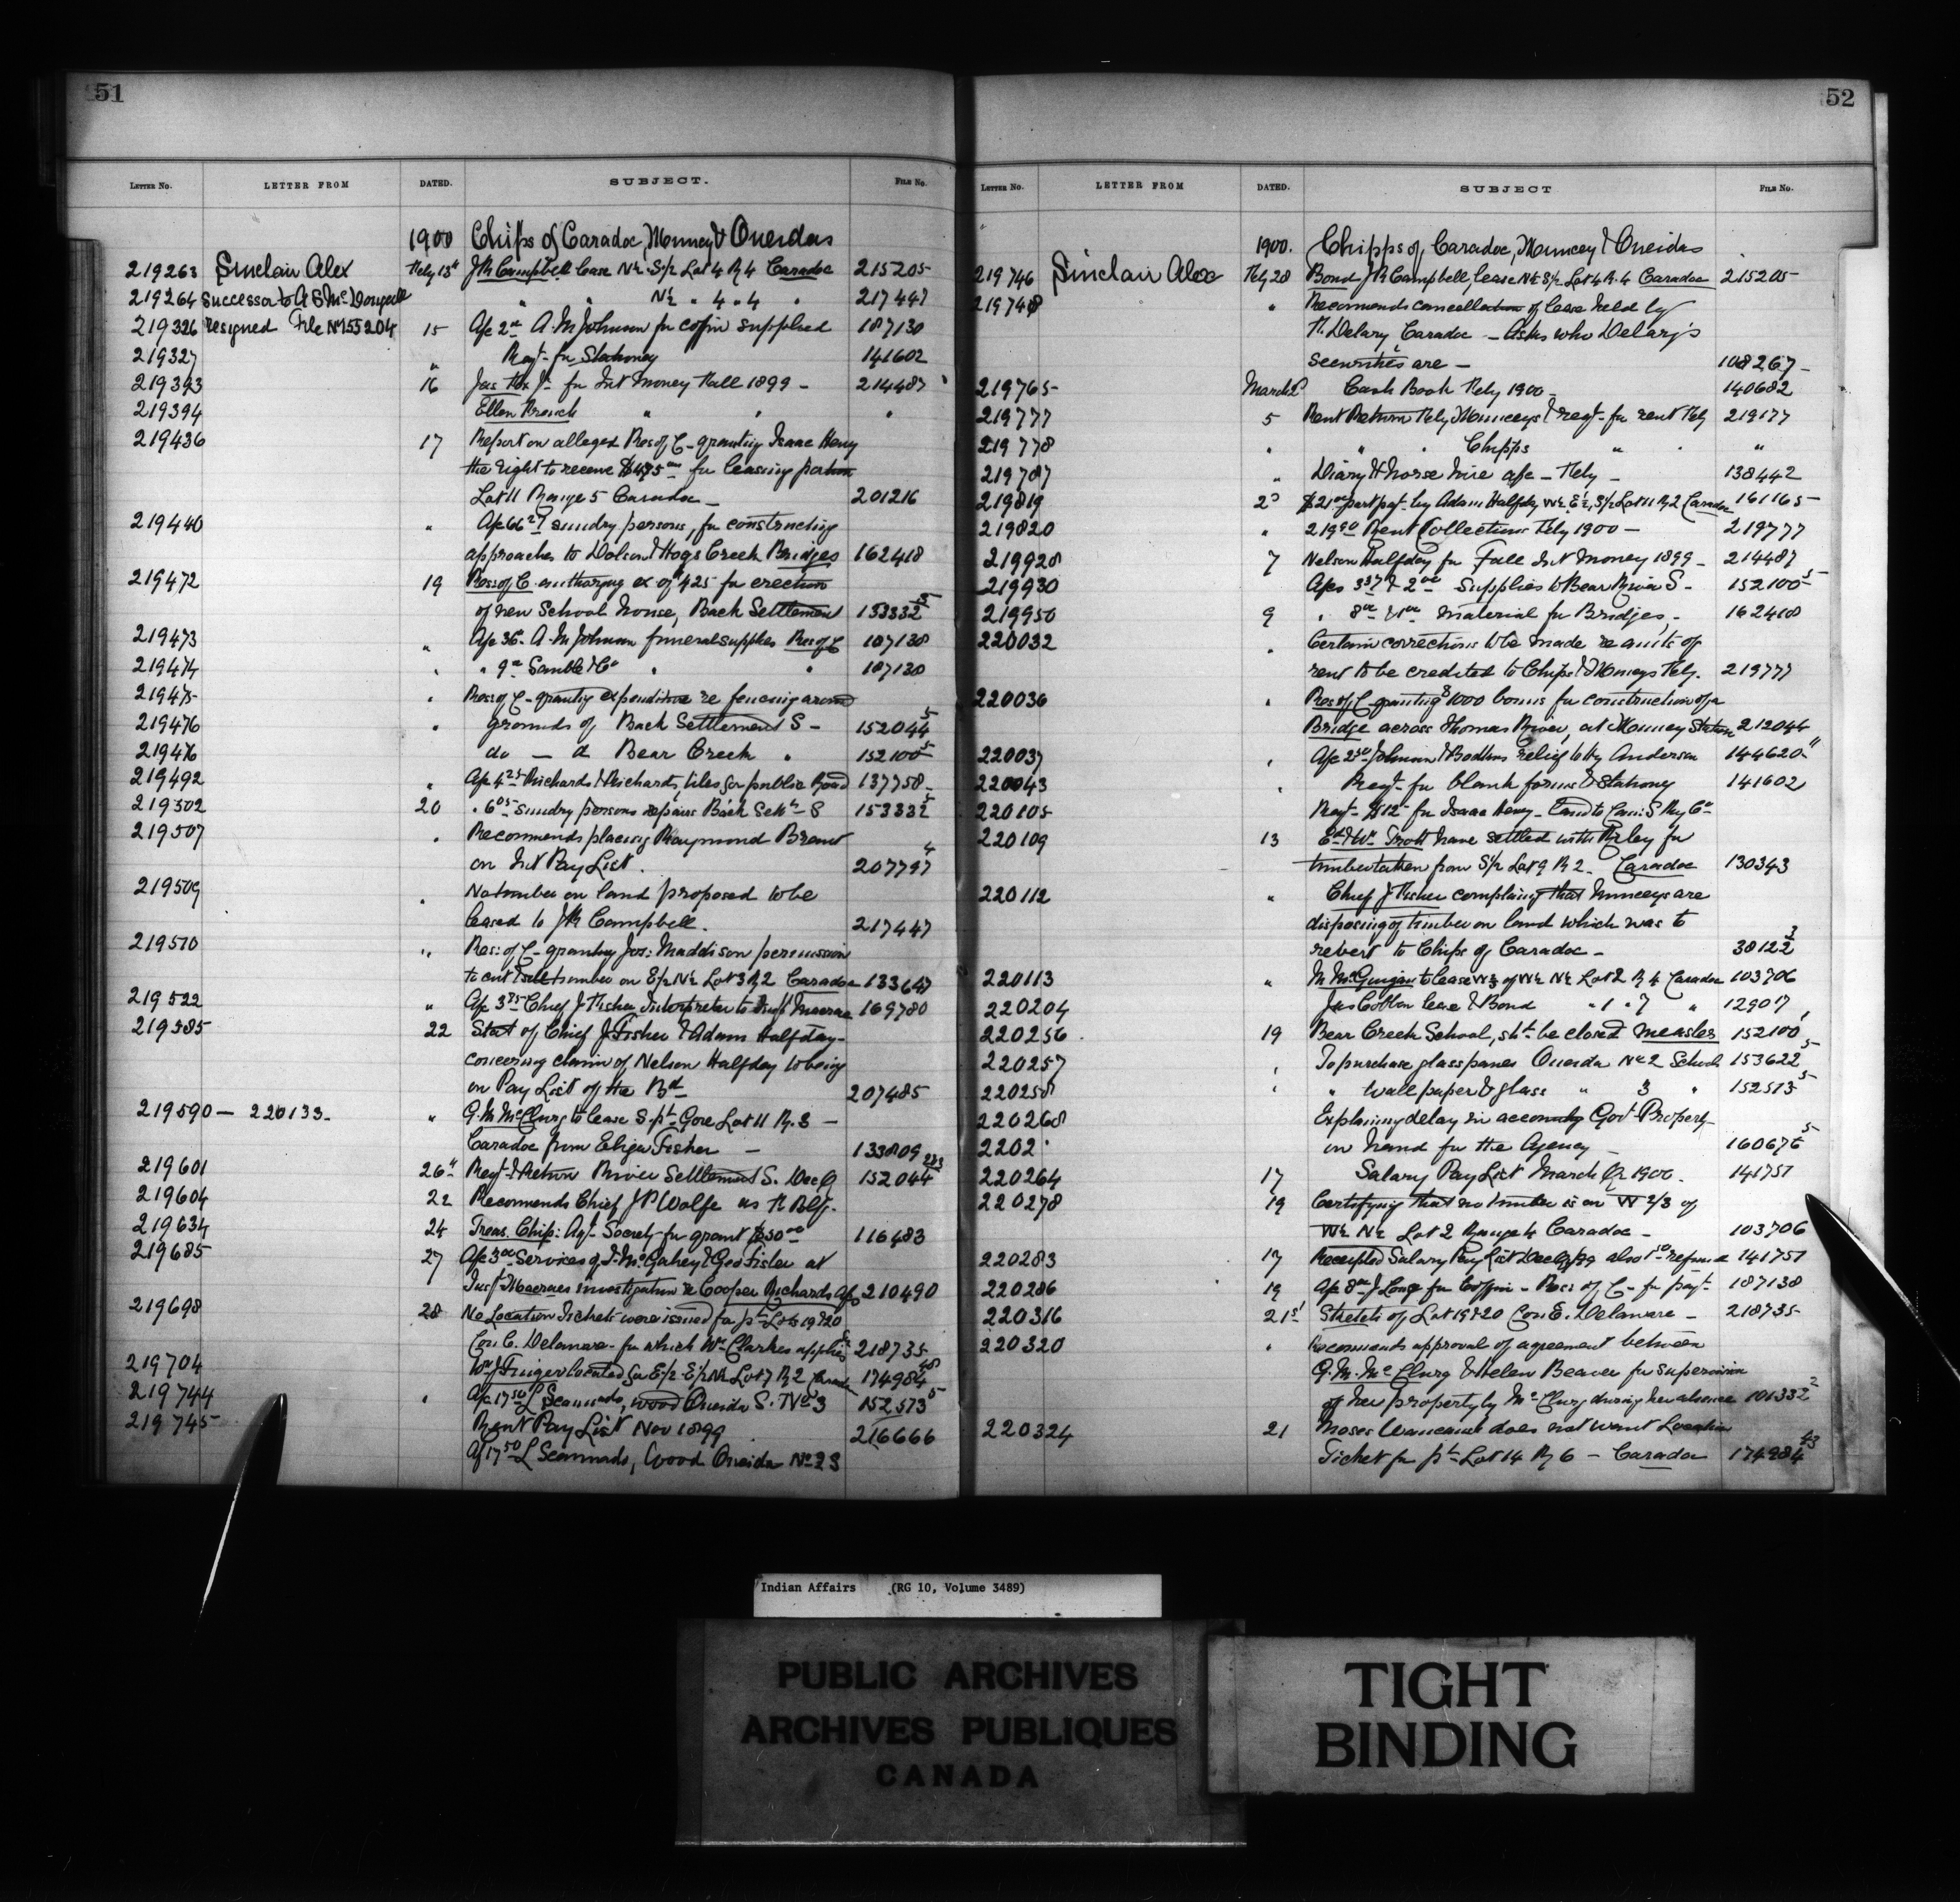 51
LETTER NO. LETTER FROM DATED. SUBJECT. FILE NO.
1900 Chips of Caradoc, Muncey & Oneidas
219263 Sinclair Alex Feby 13th J R Campbell lease N½ S½ Lot 4 R 4 Caradoc 215205
219264 Successor to A S McDougall " " N½ " 4 " 4 " 217447
219326 resigned File No 155204 15 A/c 2 00 A. M Johnson for coffin supplied 187138
219327 " Reqt for Stationery 141602
219393 16 Jas Fox Jr for Int Money Fall 1899 - 214487
219394 Ellen French " " "
219436 17 Report on alleged Res of C - granting Isaac Henry
the right to receive $475 00 for leasing portion
Lot 11 Range 5 Caradoc 201216
219440 " A/c 66 27 sundry persons, for constructing
approaches to Dolson & Hogs Creek Bridges 162418
219472 19 Res: of C. authorizing ex of $425 for erection
of new School house, Back Settlement 153332 5
219473 " A/c 36 - A. M Johnson funeral supplies Res of C 187138
219474 " " 9 00 & Co " " 187138
219475 " Res: of C - granting expenditure re fencing around
219476 " grounds of Back Settlement S - 152044 5
219476 do — @ Bear Creek " 152100 5
219492 " A/c 4 25 Richards & Richards, tiles for public Road 137758
219502 20 " 6 05 sundry persons repairs Back Settt S 153332 5
219507 " Recommends placing Raymond Brant
on Int Pay List. 207797 4
219509 " No timber on land proposed to be
leased to J R Campbell. 217447
219510 " Res: of C - granting Jos: Maddison permission
to cut & sell timber on E½ N½ Lot 3 R 2 Caradoc 133647
219522 " A/c 3 75 Chief J Fisher Interpreter to Insp Macrae 169780
219585 22 Stat of Chief J Fisher & Adam Halfday
concerning claim of Nelson Halfday to being
on Pay List of the Bd 207485
219590 — 220133 " G. M McClurg to lease S. pt Gore Lot 11 R. 3 —
Caradoc from Elija Fisher — 133809
219601 26th Reqt & Return River Settlement S. Dec Q 152044
219604 22 Recommends Chief J P Wolfe as
219634 24 Treas. Chip: Agl Society for grant $50 00 116483
219685 27 A/c 3 00 Services of J. McGahey & Geo Fisher at
Insp Macraes investigation re Cooper Richards 210490
219698 28 No Location Tickets were issued for pt Lots 19 & 20
Con C. Delaware - for which Wm Clarkes applies 218735
219704 Wm J Finger located for E½ E½ N½ Lot 7 R 2 Caradoc 174984
219744 " A/c 17 50 L Scanado, wood Oneida S. No 3 152573 5
219745 Rent Pay List Nov 1899 216666
A/c 17 50 L Scanado, Wood Oneida No 2 S
52
LETTER NO. LETTER FROM DATED. SUBJECT FILE NO.
1900. Chipps of Caradoc, Muncey & Oneidas
219746 Sinclair Alex Feby 28 Bond J R Campbell, lease N½ S½ Lot 4 R. 4 Caradoc 215205
219748 " Recomends cancellation of lease held by
T. Delary, Caradoc — Asks who Delary's
securities are — 108267
219765 March 2 Cash Book Feby 1900 140682
219777 5 Rent Return Feby Munceys & reqt - for rent Feby 219177
219778 " " Chipps " " "
219787 " Diary & horse hire a/c - Feby - 138442
219819 2 $21 00 part pat - by Adam Halfday W½ E½, S½ Lot 11 R 2 Caradoc 161165
219820 " 219 90 Rent Collections Feby 1900 — 219777
219928 7 Nelson Halfday for Fall Int Money 1899 214487
219930 A/cs 3 37 & 2 00 Supplies to Bear River S - 152100 5
219950 9 " 8 00 & 1 00 material for Bridges, - 162418
220032 " Certain corrections to be made re amts of
rent to be credited to Chips & Munceys Feby. 219777
220036 " Res of C granting $1000 bonus for construction of a
Bridge across Thames River, at Muncey Station 212044
220037 " A/c 2 50 Johnson & Boddens relief to Hy Anderson 144620
220043 " Reqt - for blank forms & Stationery 141602
220105 Reqt - $12 - for Isaac Henry - Land to Can: S Ry Co
220109 13 Ed & Wm Trott have settled with Riley for
timber taken from S½ Lot 9 R 2. Caradoc 130343
220112 " Chief J Fisher complaing that Munceys are
disposing of timber on land which was to
revert to Chips of Caradoc - 38122 3
220113 " M McGuigan to lease W⅔ of W½ N½ Lot 2 R 4 Caradoc 103706
220204 Jas Cobban lease & Bond " 1 " 7 " 129017
220256 19 Bear Creek School, sht be closed measles 152100
220257 " To purchase glass panes Oneida No 2 School 153622 5
220258 " " Wall paper & glass " 3 " 152513 5
220268 Explaining delay in accounting Govt Property
2202 on hand for the Agency 160676 5
220264 17 Salary Pay List March Qr 1900. 141751
220278 19 Certifying that no timber is on W 2/3 of
W½ N½ Lot 2 Range 4 Caradoc - 103706
220283 17 Receipted Salary Pay List Dec Q/99 also refund 141751
220286 19 A/c 8 00 J Long for Coffin - Res: of C - for payt 187138
220316 21st Sketch of Lot 19 & 20 Con E. Delaware - 218735
220320 " Recomends approval of agreement between
G. M. McClurg & Helen Beaver for supervision
of her property by McClurg during her absence 101332 2
220324 21 Moses does not want Location
Ticket for pt Lot 14 R 6 - Caradoc 174984 43
Indian Affairs (RG 10, Volume 3489)
PUBLIC ARCHIVES
ARCHIVES PUBLIQUES
CANADA
TIGHT
BINDING